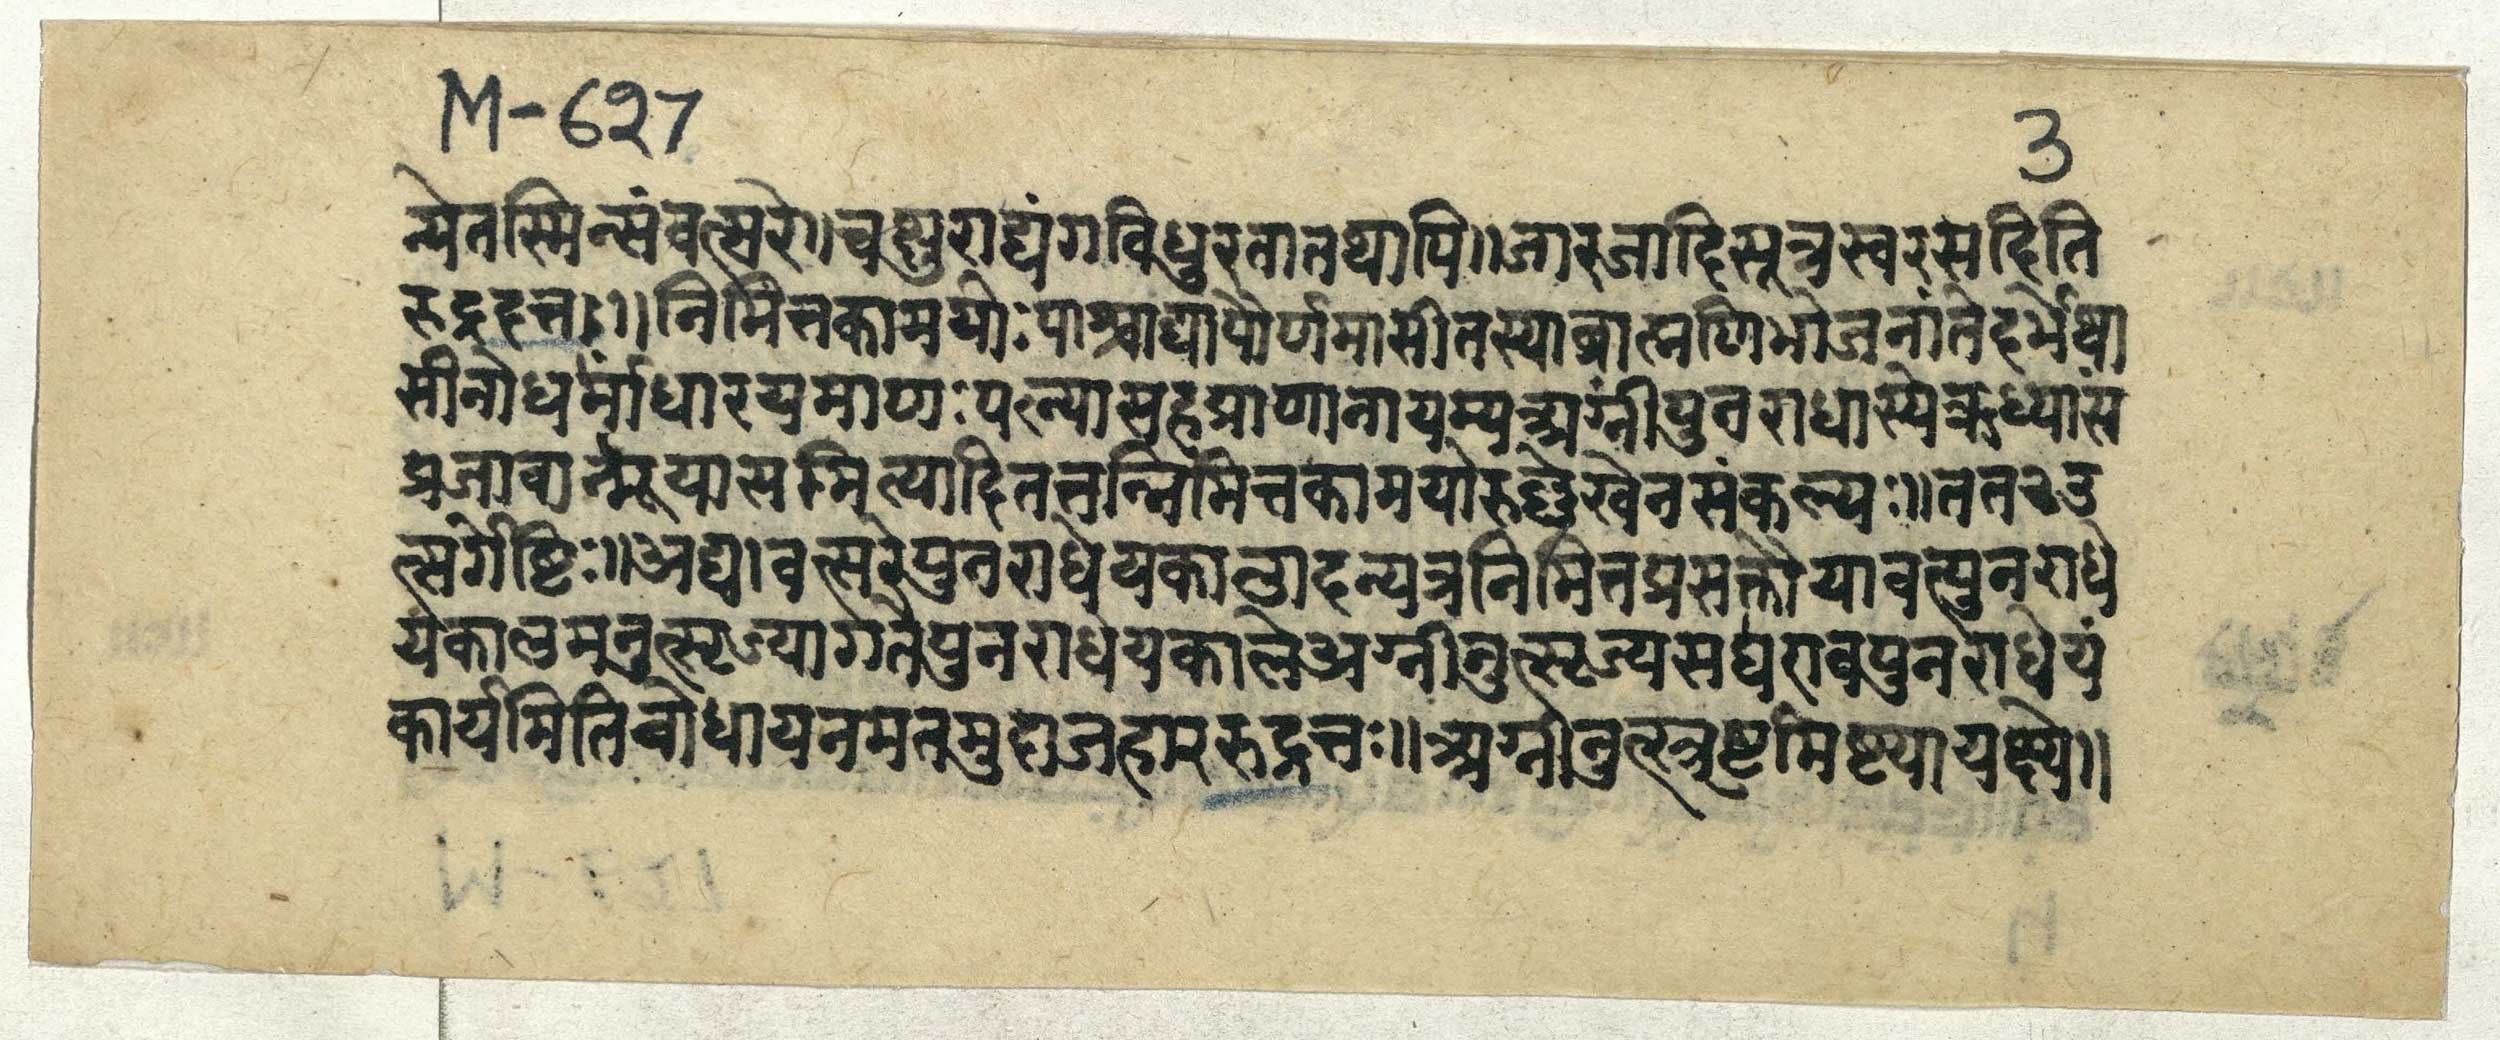 M-627
3
न्येतस्मिन्संवत्सरे॥चक्षुराद्यंगविधुरतातथापि॥आरजादिसूत्रस्वरसदिति
रुद्रदत्तः॥निमित्तकामयोःपाश्चाद्यापौर्णमासीतस्याब्राह्मणिभोजनांतेदर्भेष्वा
सीनोधर्मांधारयमाणःपत्न्यासहप्राणानायम्यअग्नीपुनराधास्येऋध्यांस
प्रजावान्भूयासमित्यादितत्तन्निमित्तकामयोरुल्लेखेनसंकल्प्यः॥ततउ
त्सर्गेष्टिः॥अद्यावत्सरेपुनराधेयकालादन्यत्रनिमित्तप्रसक्तौयावत्पुनराधे
यंकालमनुत्सृज्यागतेपुनराधेयकालेअग्नीनुत्सृज्यसद्यएवपुनराधेयं
कार्यमितिबोधायनमतमुदाजहाररुद्रदत्तः॥अग्नीनुत्स्त्रष्टुमिष्टयायक्ष्ये॥